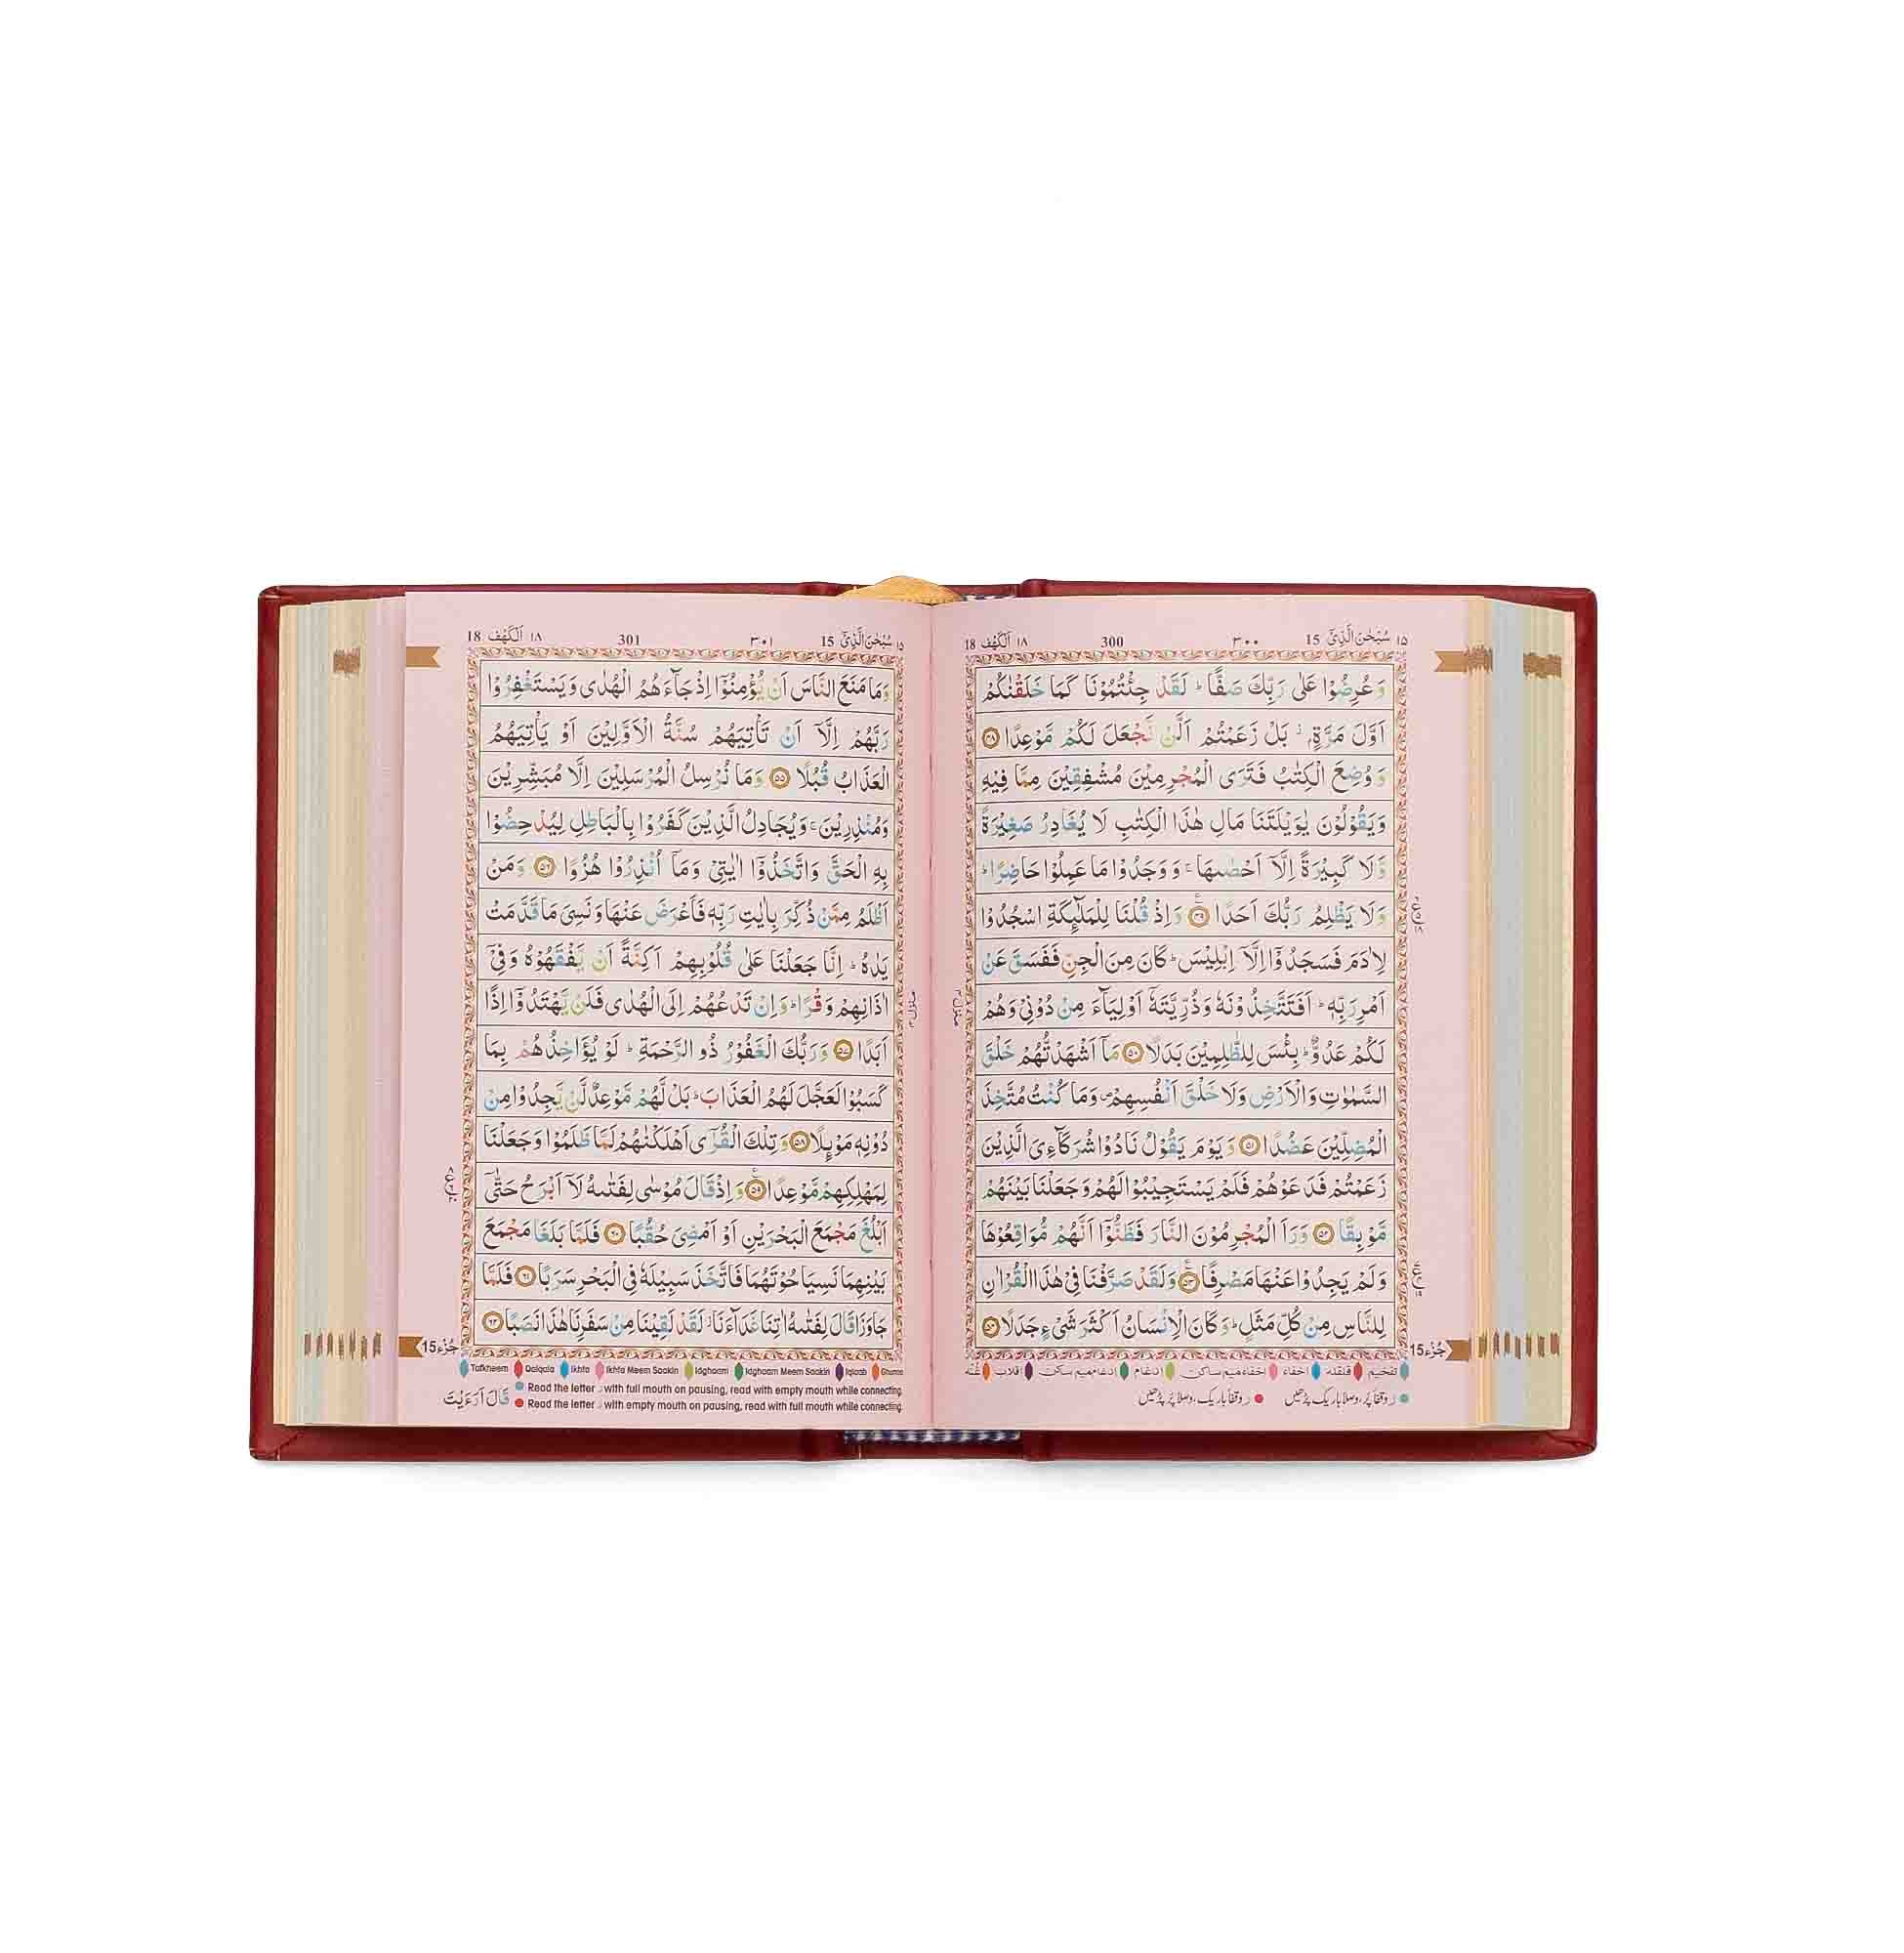 ١٥ سُبْحٰنَ الَّذِىْٓ 15 ٣٠٠ 300 ١٨ اَلْكَهْف 18
وَ عُرِضُوْا عَلٰى رَبِّكَ صَفًّا ؕ لَقَدْ جِئْتُمُوْنَا كَمَا خَلَقْنٰكُمْ
اَوَّلَ مَرَّةٍۭ ؗ بَلْ زَعَمْتُمْ اَلَّنْ نَّجْعَلَ لَكُمْ مَّوْعِدًا ۝۴۸
وَ وُضِعَ الْكِتٰبُ فَتَرَى الْمُجْرِمِيْنَ مُشْفِقِيْنَ مِمَّا فِيْهِ
وَيَقُوْلُوْنَ يٰوَيْلَتَنَا مَالِ هٰذَا الْكِتٰبِ لَا يُغَادِرُ صَغِيْرَةً
وَّلَا كَبِيْرَةً اِلَّاۤ اَحْصٰىهَا ۚ وَوَجَدُوْا مَا عَمِلُوْا حَاضِرًا ؕ
وَلَا يَظْلِمُ رَبُّكَ اَحَدًا ۝۴۹ وَاِذْ قُلْنَا لِلْمَلٰٓئِكَةِ اسْجُدُوْا
لِاٰدَمَ فَسَجَدُوْۤا اِلَّاۤ اِبْلِيْسَ ؕ كَانَ مِنَ الْجِنِّ فَفَسَقَ عَنْ
اَمْرِ رَبِّهٖ ؕ اَفَتَتَّخِذُوْنَهٗ وَذُرِّيَّتَهٗۤ اَوْلِيَآءَ مِنْ دُوْنِىْ وَهُمْ
لَكُمْ عَدُوٌّ ؕ بِئْسَ لِلظّٰلِمِيْنَ بَدَلًا ۝۵۰ مَاۤ اَشْهَدْتُّهُمْ خَلْقَ
السَّمٰوٰتِ وَالْاَرْضِ وَلَا خَلْقَ اَنْفُسِهِمْ ۪ وَمَا كُنْتُ مُتَّخِذَ
الْمُضِلِّيْنَ عَضُدًا ۝۵۱ وَيَوْمَ يَقُوْلُ نَادُوْا شُرَكَآءِىَ الَّذِيْنَ
زَعَمْتُمْ فَدَعَوْهُمْ فَلَمْ يَسْتَجِيْبُوْا لَهُمْ وَجَعَلْنَا بَيْنَهُمْ
مَّوْبِقًا ۝۵۲ وَرَاَ الْمُجْرِمُوْنَ النَّارَ فَظَنُّوْۤا اَنَّهُمْ مُّوَاقِعُوْهَا
وَلَمْ يَجِدُوْا عَنْهَا مَصْرِفًا ۝۵۳ وَلَقَدْ صَرَّفْنَا فِىْ هٰذَا الْقُرْاٰنِ
لِلنَّاسِ مِنْ كُلِّ مَثَلٍ ؕ وَكَانَ الْاِنْسَانُ اَكْثَرَ شَىْءٍ جَدَلًا ۝۵۴
جُزْء 15
تفخیم قلقله اخفاء اخفاءمیم ساکن ادغام ادغام میم ساکن اقلاب غنّه
ر وقفاً پُر، وصلاً باریک پڑھیں ر وقفاً باریک، وصلاً پُر پڑھیں
١٥ سُبْحٰنَ الَّذِىْٓ 15 ٣٠١ 301 ١٨ اَلْكَهْف 18
وَمَا مَنَعَ النَّاسَ اَنْ يُّؤْمِنُوْۤا اِذْ جَآءَهُمُ الْهُدٰى وَيَسْتَغْفِرُوْا
رَبَّهُمْ اِلَّاۤ اَنْ تَاْتِيَهُمْ سُنَّةُ الْاَوَّلِيْنَ اَوْ يَاْتِيَهُمُ
الْعَذَابُ قُبُلًا ۝۵۵ وَمَا نُرْسِلُ الْمُرْسَلِيْنَ اِلَّا مُبَشِّرِيْنَ
وَمُنْذِرِيْنَ ۚ وَيُجَادِلُ الَّذِيْنَ كَفَرُوْا بِالْبَاطِلِ لِيُدْحِضُوْا
بِهِ الْحَقَّ وَاتَّخَذُوْۤا اٰيٰتِىْ وَمَاۤ اُنْذِرُوْا هُزُوًا ۝۵۶ وَمَنْ
اَظْلَمُ مِمَّنْ ذُكِّرَ بِاٰيٰتِ رَبِّهٖ فَاَعْرَضَ عَنْهَا وَنَسِىَ مَا قَدَّمَتْ
يَدٰهُ ؕ اِنَّا جَعَلْنَا عَلٰى قُلُوْبِهِمْ اَكِنَّةً اَنْ يَّفْقَهُوْهُ وَفِىْۤ
اٰذَانِهِمْ وَقْرًا ؕ وَاِنْ تَدْعُهُمْ اِلَى الْهُدٰى فَلَنْ يَّهْتَدُوْۤا اِذًا
اَبَدًا ۝۵۷ وَرَبُّكَ الْغَفُوْرُ ذُو الرَّحْمَةِ ؕ لَوْ يُؤَاخِذُهُمْ بِمَا
كَسَبُوْا لَعَجَّلَ لَهُمُ الْعَذَابَ ؕ بَلْ لَّهُمْ مَّوْعِدٌ لَّنْ يَّجِدُوْا مِنْ
دُوْنِهٖ مَوْئِلًا ۝۵۸ وَتِلْكَ الْقُرٰٓى اَهْلَكْنٰهُمْ لَمَّا ظَلَمُوْا وَجَعَلْنَا
لِمَهْلِكِهِمْ مَّوْعِدًا ۝۵۹ وَاِذْ قَالَ مُوْسٰى لِفَتٰىهُ لَاۤ اَبْرَحُ حَتّٰۤى
اَبْلُغَ مَجْمَعَ الْبَحْرَيْنِ اَوْ اَمْضِىَ حُقُبًا ۝۶۰ فَلَمَّا بَلَغَا مَجْمَعَ
بَيْنِهِمَا نَسِيَا حُوْتَهُمَا فَاتَّخَذَ سَبِيْلَهٗ فِى الْبَحْرِ سَرَبًا ۝۶۱ فَلَمَّا
جَاوَزَا قَالَ لِفَتٰىهُ اٰتِنَا غَدَآءَنَا ؗ لَقَدْ لَقِيْنَا مِنْ سَفَرِنَا هٰذَا نَصَبًا ۝۶۲
جُزْء 15
Tafkheem Qalqala Ikhfa Ikhfa Meem Saakin Idghaam Idghaam Meem Saakin Iqlaab Ghunna
Read the letter ر with full mouth on pausing, read with empty mouth while connecting.
Read the letter ر with empty mouth on pausing, read with full mouth while connecting.
قَالَ اَرَءَيْتَ